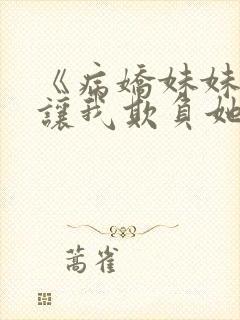 《病嬌妹妹
讓我欺負她
蒿雀